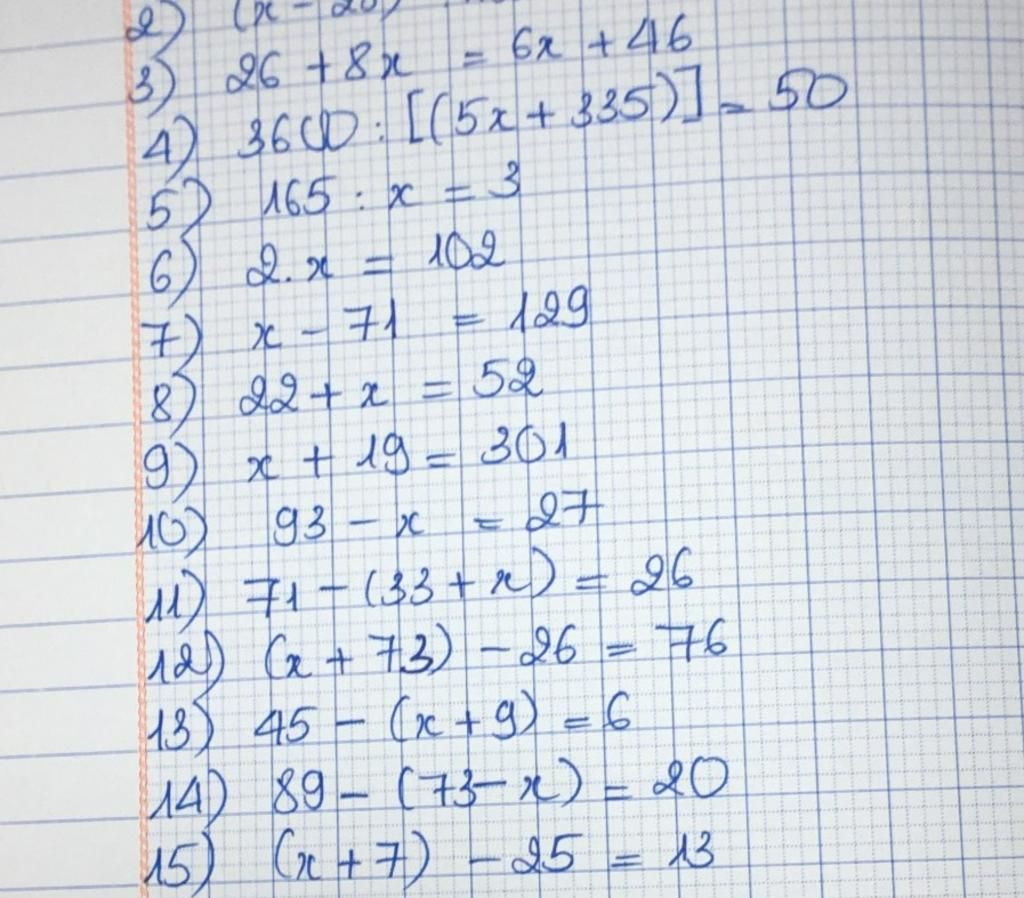 2) (x - 20)
3) 26 + 8x = 6x + 46
4) 3600 : [(5x + 335)] = 50
5) 165 : x = 3
6) 2.x = 102
7) x - 71 = 129
8) 22 + x = 52
9) x + 19 = 301
10) 93 - x = 27
11) 71 - (33 + x) = 26
12) (x + 73) - 26 = 76
13) 45 - (x + 9) = 6
14) 89 - (73 - x) = 20
15) (x + 7) - 25 = 13